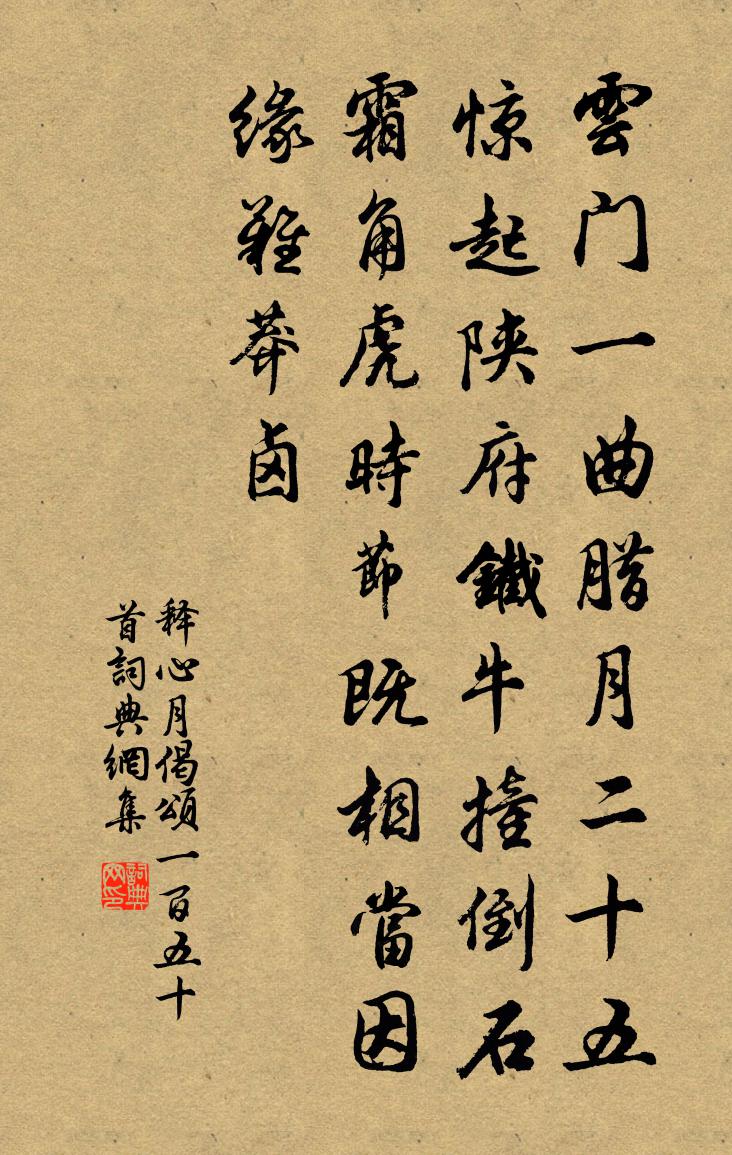 雲门一曲腊月二十五
惊起陕府鐵牛撞倒石
霜角虎時節既相當因
缘難莽卤
释心月偈頌一百五十
首詞典網集
詞典网印